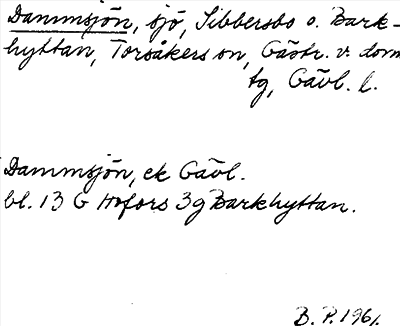 Dammsjön, sjö, Sibbersbo o. Bark-
hyttan, Torsåkers sn, Gästr. v. dom
tg, Gävl. l.
Dammsjön, ek Gävl.
bl. 13 G Hofors 3g Barkhyttan.
B. P. 1961.